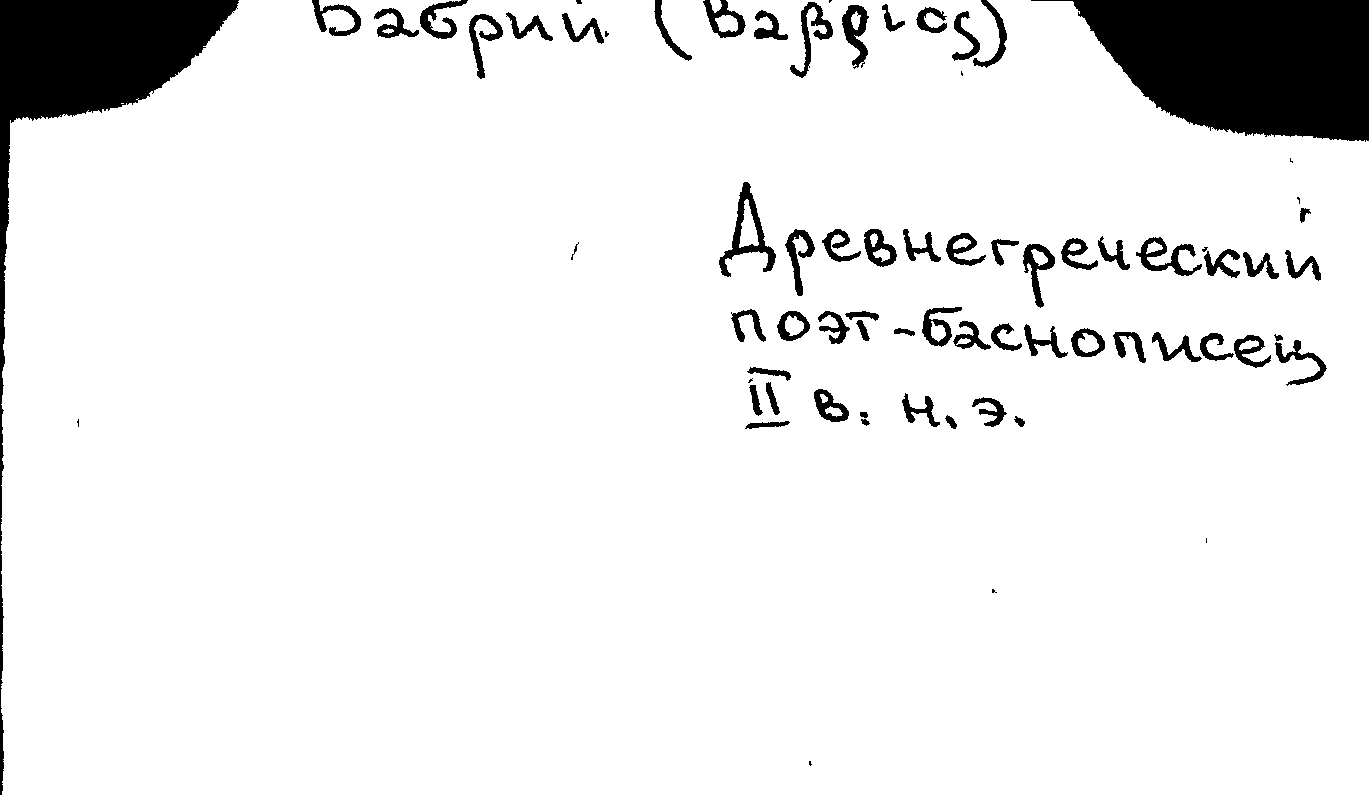 Бабрий (Βαβριος)
Древнегреческий
поэт-баснописец
II в. н. э.